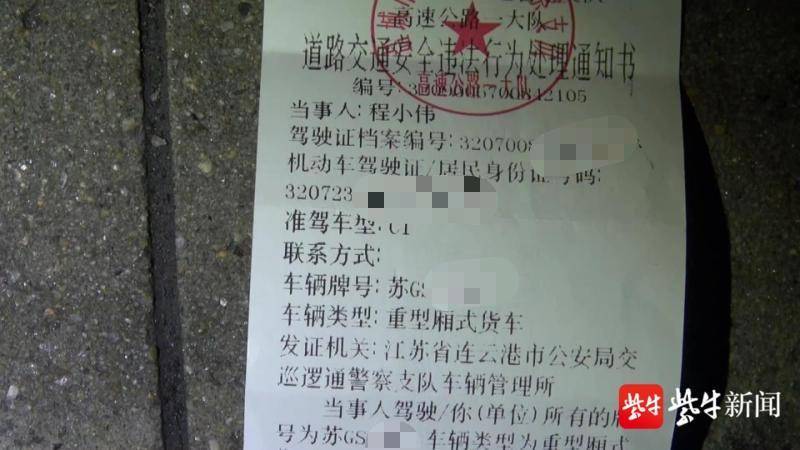 高速公路一大队
道路交通安全违法行为处理通知书
高速公路一大队
编号:
当事人: 程小伟
驾驶证档案编号: 3207008
机动车驾驶证/居民身份证号码:
320723
准驾车型: C1
联系方式:
车辆牌号: 苏GS
车辆类型: 重型厢式货车
发证机关: 江苏省连云港市公安局交
巡逻通警察支队车辆管理所
当事人驾驶/你(单位)所有的牌
号为苏GS 车辆类型为重型厢式
紫牛 紫牛新闻